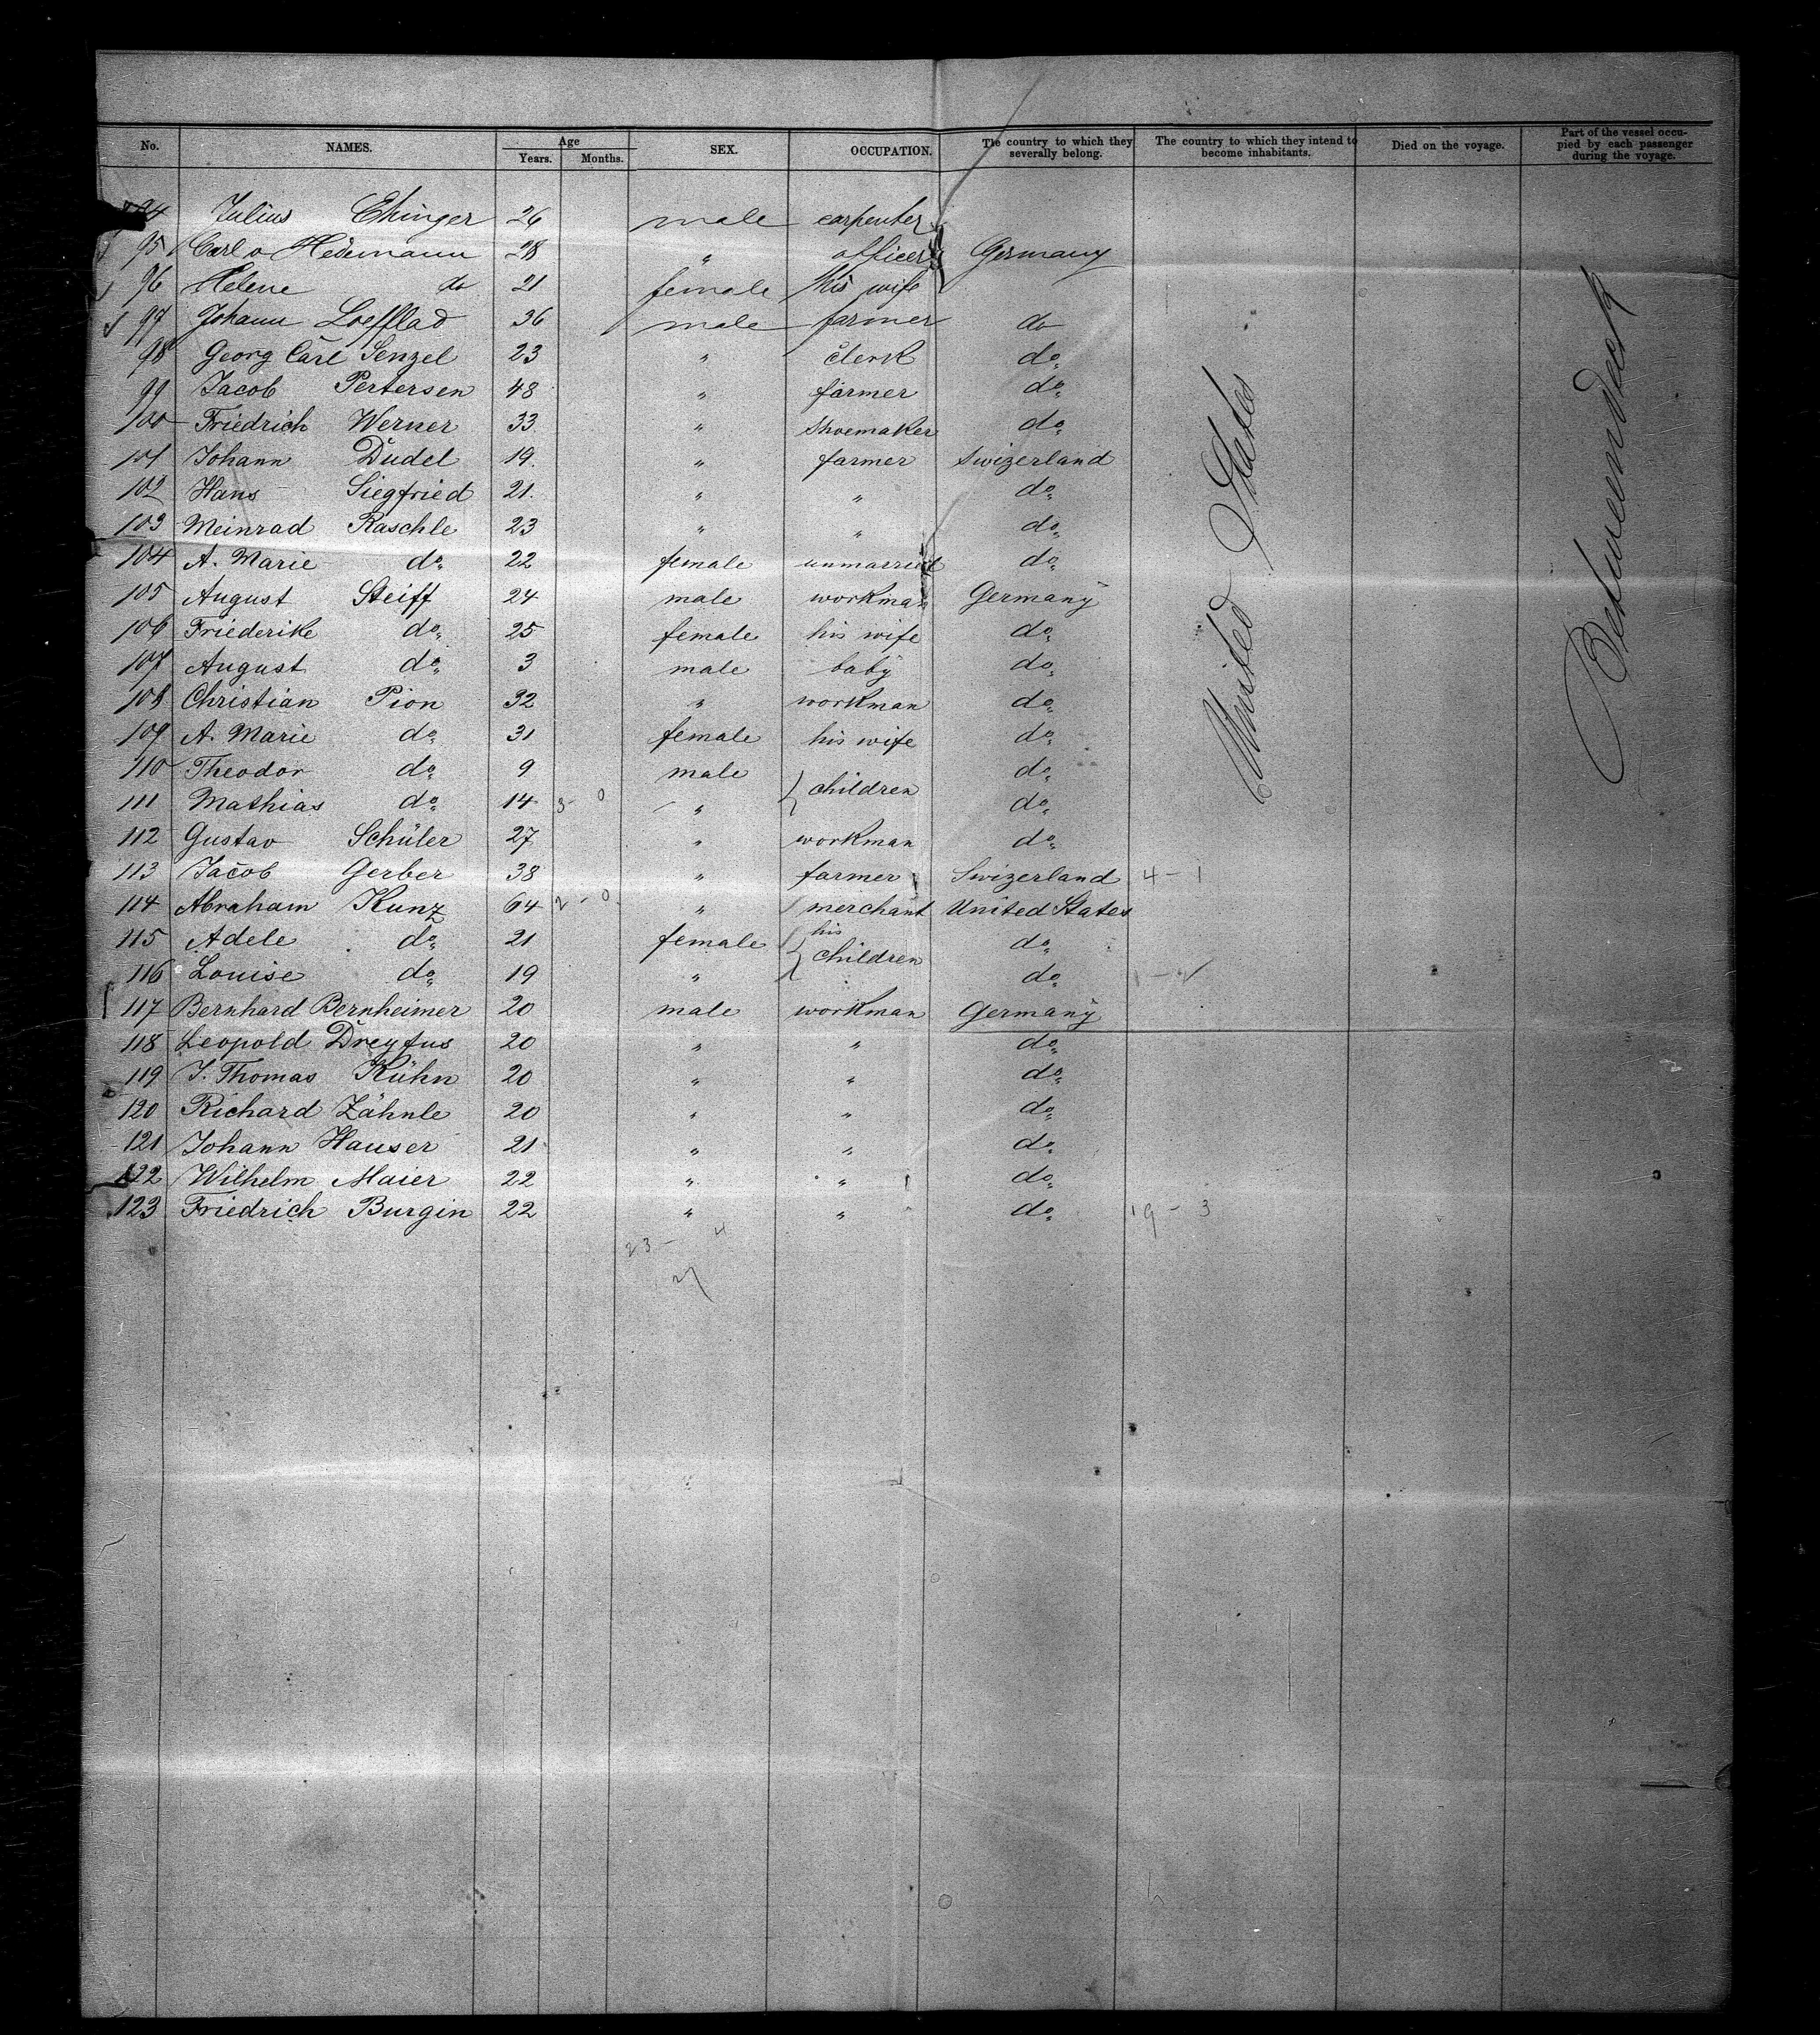 No. NAMES. Age Years. Months. SEX. OCCUPATION. The country to which they severally belong. The country to which they intend to become inhabitants. Died on the voyage. Part of the vessel occupied by each passenger during the voyage.
94 Julius Ehinger 26 male carpenter
95 Carl v Hedemann 28 " officer Germany
96 Helene do 21 female his wife
97 Johann Loefflad 36 male farmer do
98 Georg Carl Senzel 23 " clerk do
99 Jacob Pertersen 48 " farmer do
100 Friedrich Werner 33 " Shoemaker do
101 Johann Dudel 19 " farmer Swizerland
102 Hans Siegfried 21 " " do
103 Meinrad Raschle 23 " " do
104 A. Marie do 22 female unmarried do
105 August Steiff 24 male workman Germany
106 Friederike do 25 female his wife do
107 August do 3 male baby do
108 Christian Pion 32 " workman do
109 A. Marie do 31 female his wife do
110 Theodor do 9 male children do
111 Mathias do 14 3 - 0 " do
112 Gustav Schüler 27 " workman do
113 Jacob Gerber 38 " farmer Swizerland 4 - 1
114 Abraham Kunz 64 2 - 0 " merchant United States
115 Adele do 21 female his children do
116 Louise do 19 " do
117 Bernhard Bernheimer 20 male workman Germany
118 Leopold Dreyfus 20 " " do
119 J. Thomas Kühn 20 " " do
120 Richard Zähnle 20 " " do
121 Johann Hauser 21 " " do
122 Wilhelm Maier 22 " " do
123 Friedrich Burgin 22 " " do 19 - 3
23 - 4
United States
Betweendeck